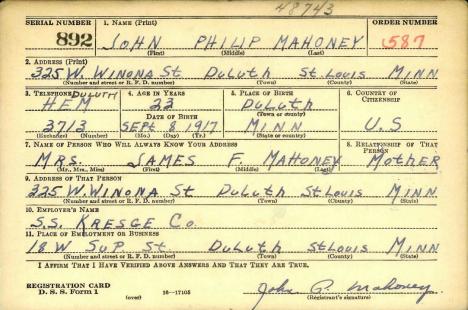 48743
SERIAL NUMBER 1. NAME (Print) ORDER NUMBER
892 JOHN PHILIP MAHONEY 587
(First) (Middle) (Last)
2. ADDRESS (Print)
325 W. WINONA St DULUTH St. LOUIS MINN
(Number and street or R. F. D. number) (Town) (County) (State)
3. TELEPHONE 4. AGE IN YEARS 5. PLACE OF BIRTH 6. COUNTRY OF CITIZENSHIP
DULUTH
HEM 23 DULUTH
DATE OF BIRTH (Town or county)
3713 SEPT 8 1917 MINN U.S
(Exchange) (Number) (Mo.) (Day) (Yr.) (State or country)
7. NAME OF PERSON WHO WILL ALWAYS KNOW YOUR ADDRESS 8. RELATIONSHIP OF THAT PERSON
MRS. JAMES F. MAHONEY MOTHER
(Mr., Mrs., Miss) (First) (Middle) (Last)
9. ADDRESS OF THAT PERSON
325 W. WINONA St DULUTH St LOUIS MINN
(Number and street or R. F. D. number) (Town) (County) (State)
10. EMPLOYER'S NAME
S.S. KRESGE CO.
11. PLACE OF EMPLOYMENT OR BUSINESS
18 W SUP. St. DULUTH St LOUIS MINN
(Number and street or R. F. D. number) (Town) (County) (State)
I AFFIRM THAT I HAVE VERIFIED ABOVE ANSWERS AND THAT THEY ARE TRUE.
REGISTRATION CARD
D. S. S. Form 1 (over) 16—17105 John P. Mahoney
(Registrant's signature)